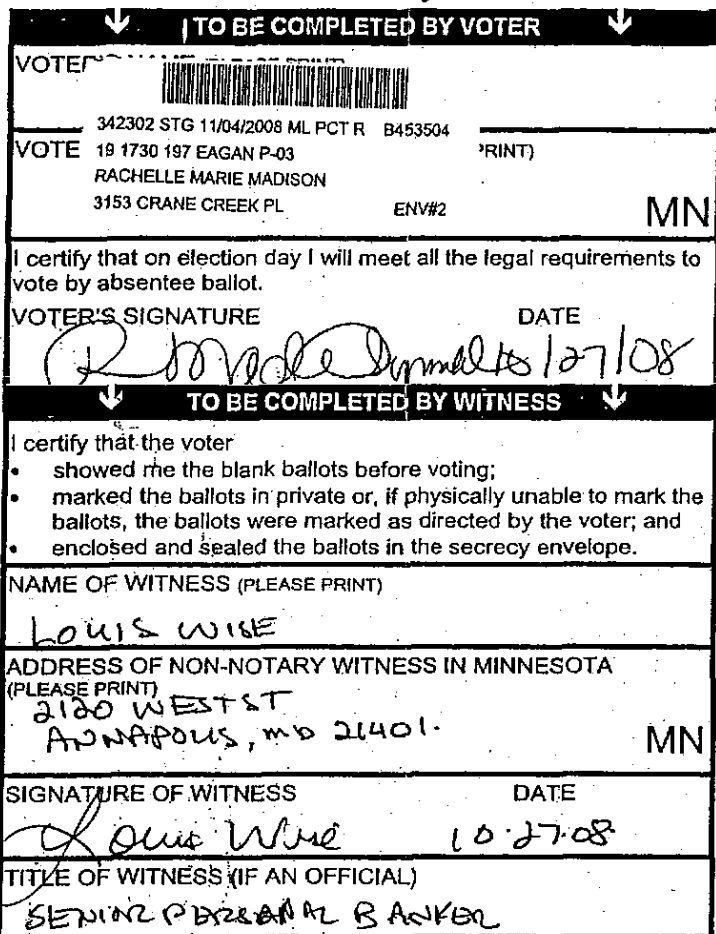 TO BE COMPLETED BY VOTER
VOTER'S
342302 STG 11/04/2008 ML PCT R B453504
VOTE 19 1730 197 EAGAN P-03 PRINT)
RACHELLE MARIE MADISON
3153 CRANE CREEK PL ENV#2 MN
I certify that on election day I will meet all the legal requirements to
vote by absentee ballot.
VOTER'S SIGNATURE DATE
R 10/27/08
TO BE COMPLETED BY WITNESS
I certify that the voter
• showed me the blank ballots before voting;
• marked the ballots in private or, if physically unable to mark the
ballots, the ballots were marked as directed by the voter; and
• enclosed and sealed the ballots in the secrecy envelope.
NAME OF WITNESS (PLEASE PRINT)
LOUIS WISE
ADDRESS OF NON-NOTARY WITNESS IN MINNESOTA
(PLEASE PRINT)
2120 WEST ST
ANNAPOLIS, MD 21401.
MN
SIGNATURE OF WITNESS DATE
Louis Wise 10.27.08
TITLE OF WITNESS (IF AN OFFICIAL)
SENIOR PERSONAL BANKER